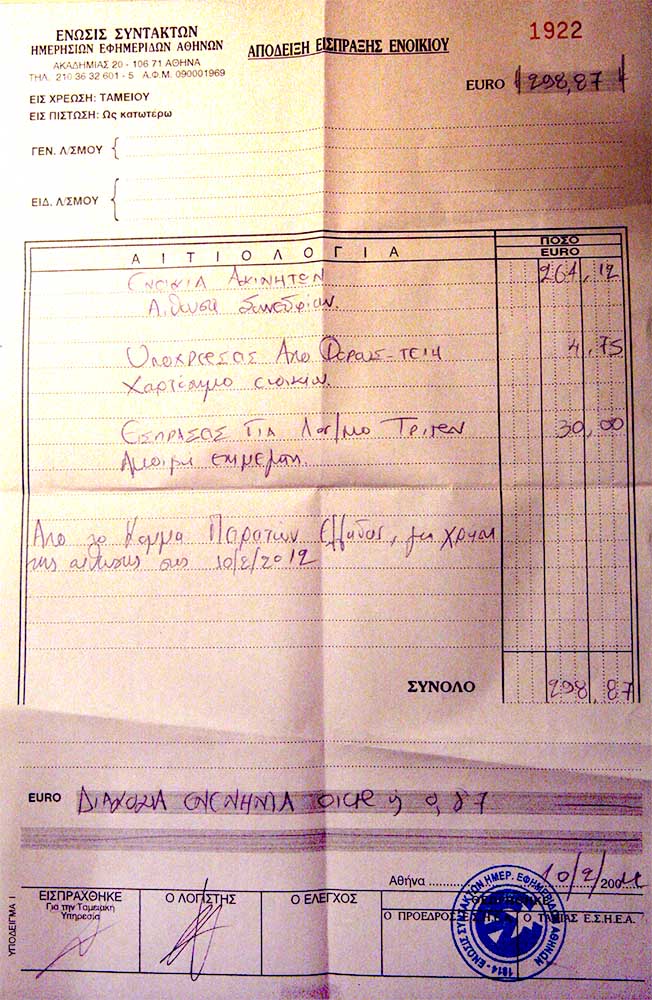 ΕΝΩΣΙΣ ΣΥΝΤΑΚΤΩΝ
ΗΜΕΡΗΣΙΩΝ ΕΦΗΜΕΡΙΔΩΝ ΑΘΗΝΩΝ
ΑΚΑΔΗΜΙΑΣ 20 - 106 71 ΑΘΗΝΑ
ΤΗΛ. 210 36 32 601 - 5 Α.Φ.Μ. 090001969
ΑΠΟΔΕΙΞΗ ΕΙΣΠΡΑΞΗΣ ΕΝΟΙΚΙΟΥ
1922
EURO 298,87
ΕΙΣ ΧΡΕΩΣΗ: ΤΑΜΕΙΟΥ
ΕΙΣ ΠΙΣΤΩΣΗ: Ως κατωτέρω
ΓΕΝ. Λ/ΣΜΟΥ
ΕΙΔ. Λ/ΣΜΟΥ
ΑΙΤΙΟΛΟΓΙΑ
ΠΟΣΟ
EURO
ΕΝΟΙΚΙΑ ΑΚΙΝΗΤΩΝ 264,12
Αίθουσα Συνεδρίων.
Υποχρεώσεις Απο 4,75
Χαρτόσημο
Εισπράξεις Για Λογ/μο Τρίτων 30,00
Αμοιβή
Απο το Κόμμα Πειρατών Ελλάδας, για χρήση
της αίθουσας στις 10/2/2012
ΣΥΝΟΛΟ 298,87
EURO ΔΙΑΚΟΣΙΑ ΕΝΕΝΗΝΤΑ ΟΚΤΩ 0,87
Αθήνα 10/2/200
ΥΠΟΔΕΙΓΜΑ Ι
ΕΙΣΠΡΑΧΘΗΚΕ
Για την Ταμειακή
Υπηρεσία
Ο ΛΟΓΙΣΤΗΣ
Ο ΕΛΕΓΧΟΣ
Ο ΠΡΟΕΔΡΟΣ Ε.Σ.Η.Ε.Α.
Ο ΤΑΜΙΑΣ Ε.Σ.Η.Ε.Α.
1914 - ΕΝΩΣΙΣ ΣΥΝΤΑΚΤΩΝ ΗΜΕΡ. ΕΦΗΜΕΡΙΔΩΝ ΑΘΗΝΩΝ